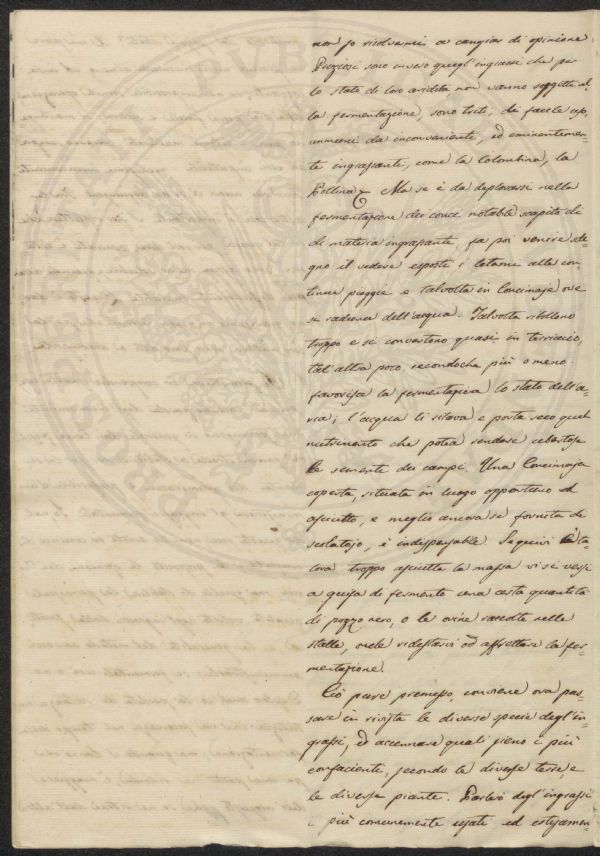 non so risolvermi a cangiar di opinione
Preziosi sono invero quegl'ingrassi che per
lo stato di loro aridità non vanno soggetti al
la fermentazione, sono triti, di facile uso,
immuni da inconveniente, ed eminentemen=
te ingrassanti, come la Colombina, la
Pollina. Ma se è da deplorarsi nella
fermentazione dei conci notabile scapito di
di materia ingrassante, fa poi venire
il vedere esposti i letami alle con=
tinue pioggie e talvolta in Concimaje ove
si raduna dell'acqua. Talvolta ribollono
troppo e si convertono quasi in terriccio,
tal'altra poco, secondochè più o meno
favorisca la fermentazione lo stato dell'a=
ria; l'acqua li dilava e porta seco quel
nutrimento che potea rendere ubertose
le sementi dei campi. Una Concimaja
coperta, situata in luogo opportuno ed
asciutto, e meglio ancora se fornita di
scolatojo, è indispensabile. Se quivi
troppo asciutta la massa vi si versi
a guisa di fermento una certa quantità
di pozzo nero, o le orine raccolte nelle
stalle, onde ridestarvi ed affrettare la fer=
mentazione.
Ciò pure premesso, conviene ora pas=
sare in rivista le diverse specie degl'in=
grassi, ed accennare quali sieno i più
confacienti, secondo le diverse terre, e
le diverse piante. Parlerò degl'ingrassi
i più comunemente usati ed estesamen=